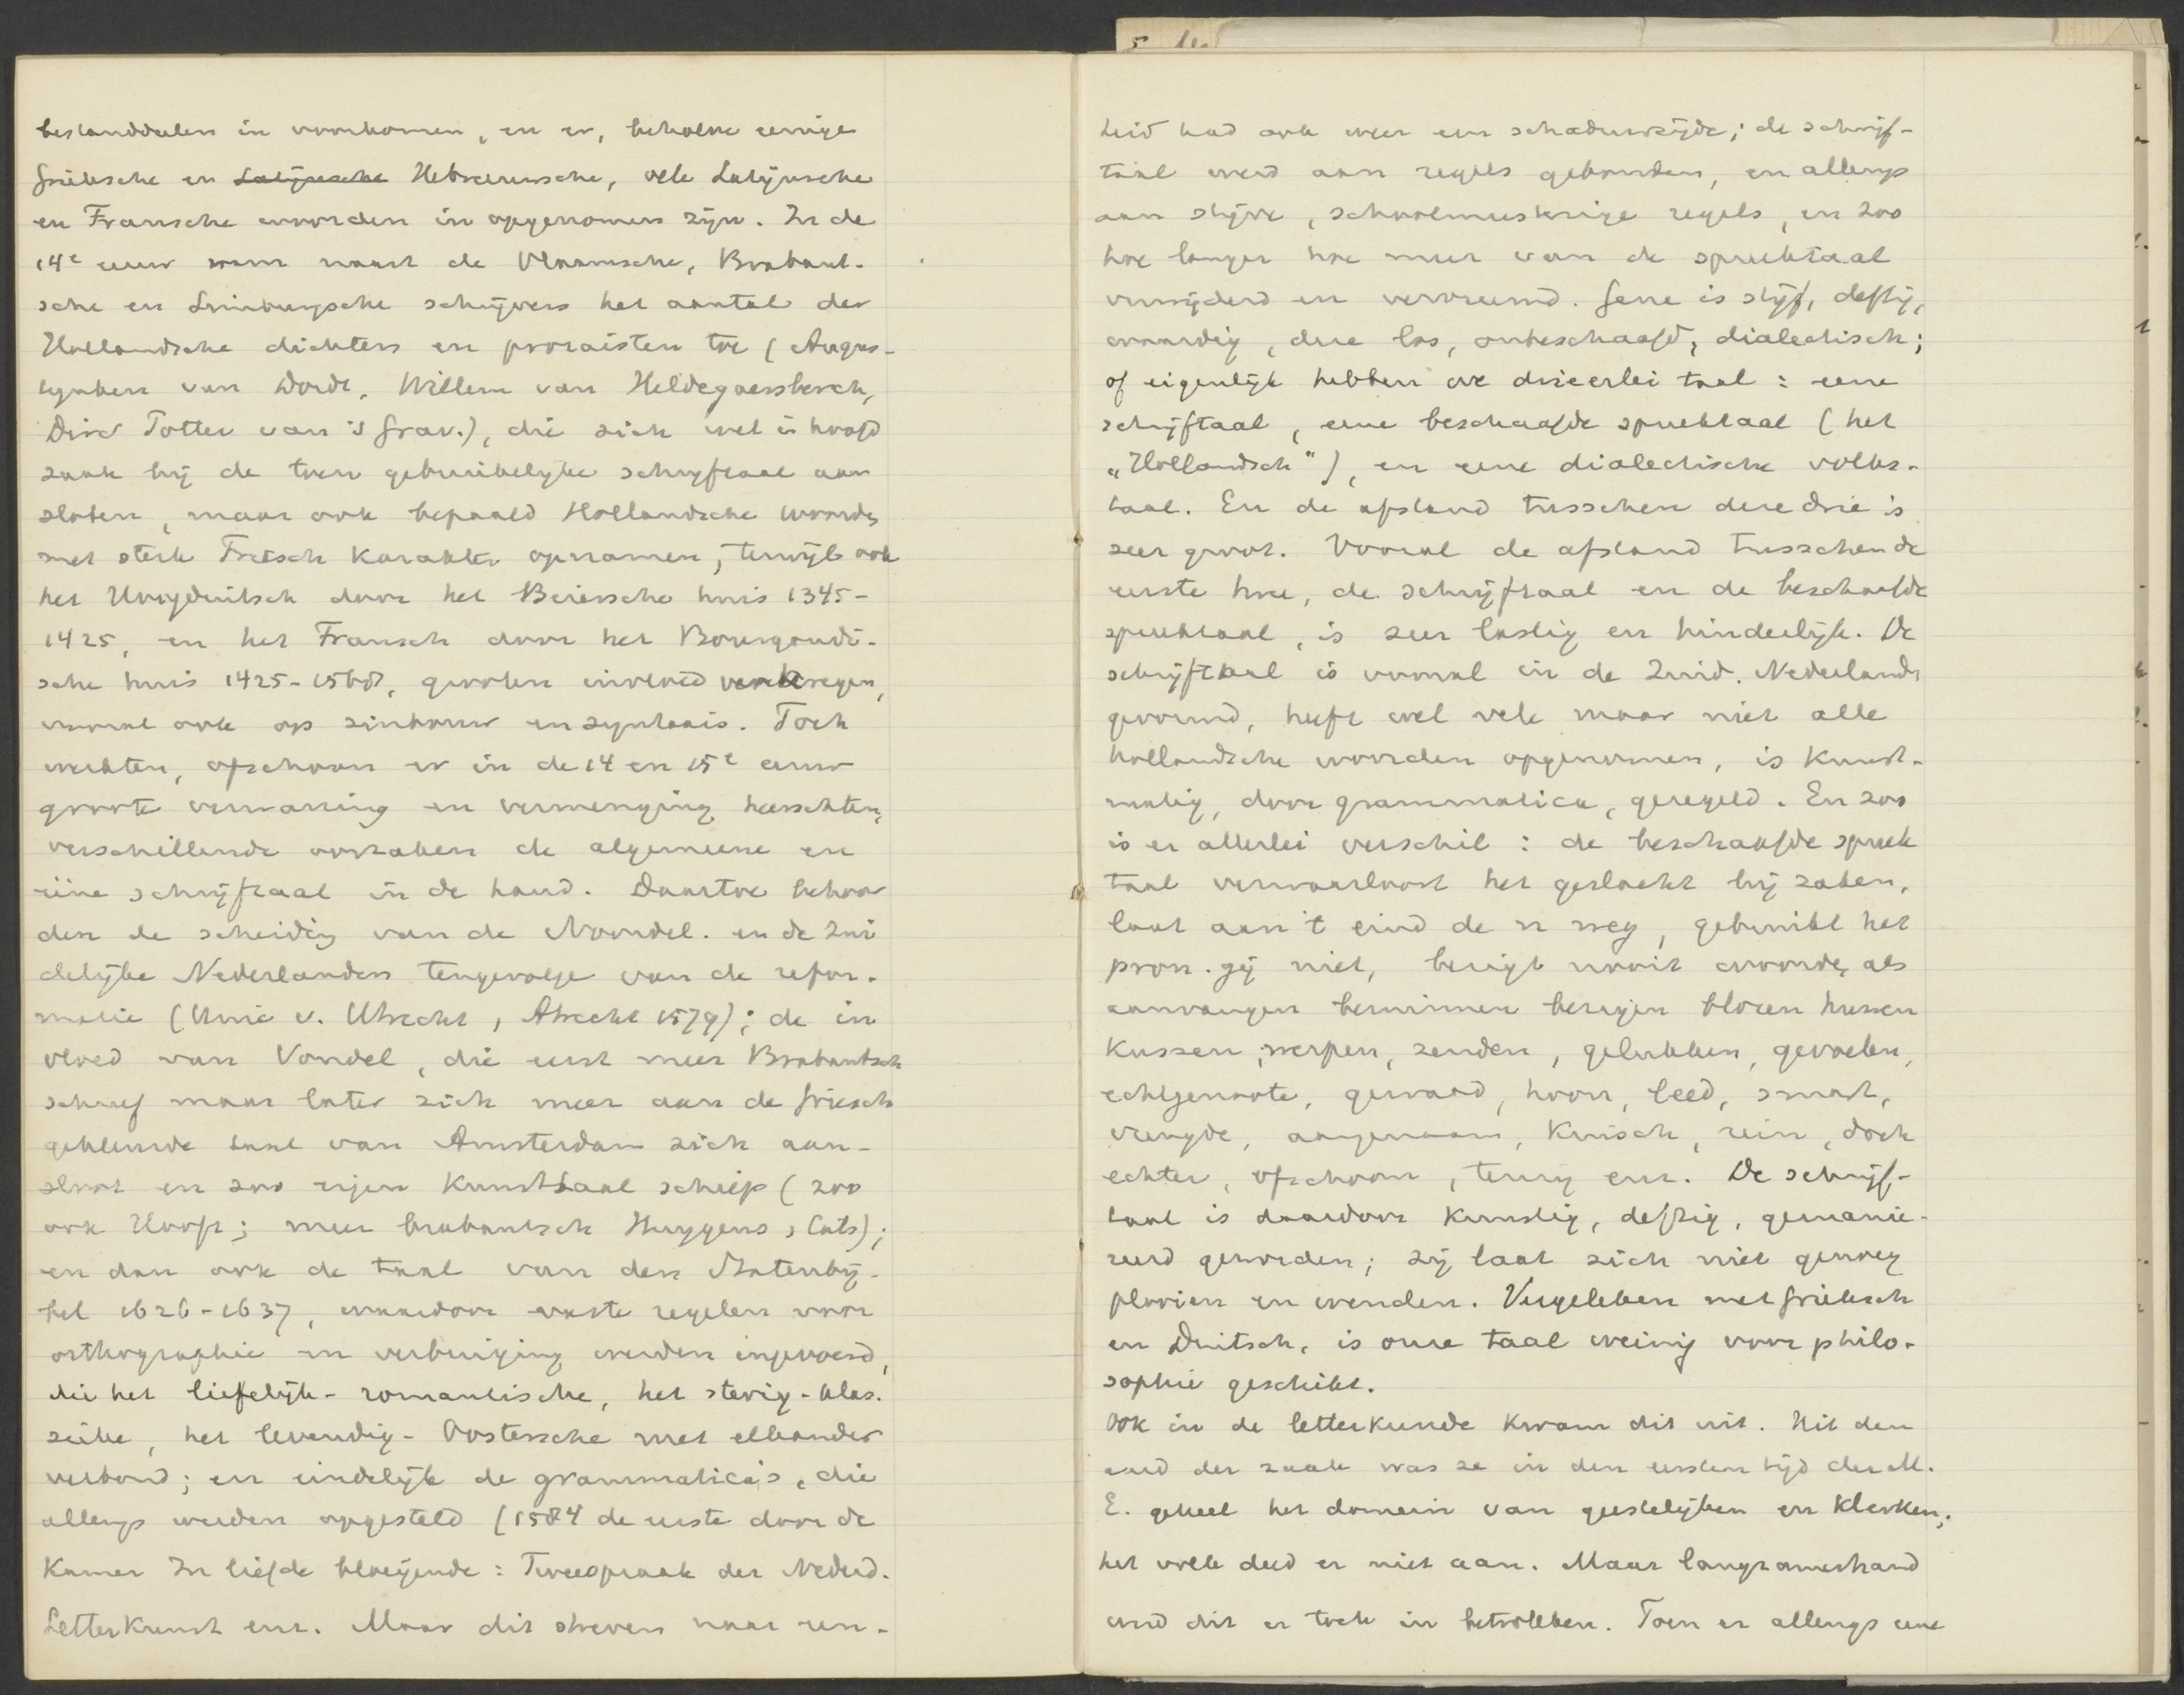 bestanddeelen in voorkomen, en er, behalve eenige
Grieksche en Latijnsche Hebreeuwsche, vele Latijnsche
en Fransche woorden in opgenomen zijn. In de
14e eeuw nam naast de Vlaamsche, Brabant-
sche en Limburgsche schrijvers het aantal der
Hollandsche dichters en prozaisten toe (Augus-
tijnken van Dordt, Willem van Hildegaersberch,
Dirc Potter van 's Grav.), die zich wel in hoofd
zaak bij de toen gebruikelijke schrijftaal aan
sloten, maar ook bepaald Hollandsche woorden
met sterk Friesch karakter opnamen; terwijl ook
het Hoogduitsch door het Beiersche huis 1345-
1425, en het Fransch door het Bourgondi-
sche huis 1425-1568, grooten invloed verkregen,
vooral ook op zinbouw en syntaxis. Toch
werkten, ofschoon er in de 14 en 15e eeuw
groote verwarring en vermenging heerschten,
verschillende oorzaken de algemeene en
ééne schrijftaal in de hand. Daartoe behoor
den de scheiding van de Noordel. en de Zui
delijke Nederlanden tengevolge van de refor-
matie (Unie v. Utrecht, Atrecht 1579); de in
vloed van Vondel, die eerst meer Brabantsch
schreef maar later zich meer aan de friesch
gekleurde taal van Amsterdam zich aan-
sloot en zoo eigen kunsttaal schiep (zoo
ook Hooft; meer brabantsch Huygens, Cats);
en dan ook de taal van den Statenbij-
bel 1626-1637, waardoor vaste regelen voor
orthographie en verbuiging werden ingevoerd,
die het liefelijk-romantische, het stevig-klas-
sieke, het levendig-Oostersche met elkander
verbond; en eindelijk de grammatica's, die
allengs werden opgesteld (1584 de eerste door de
Kamer In liefde bloeijende: Tweespraak der Nederd.
Letterkunst enz. Maar dit streven naar een-
heid had ook weer een schaduwzijde; de schrijf-
taal werd aan regels gebonden, en allengs
aan stijve, schoolmeesterige regels, en zoo
hoe langer hoe meer van de spreektaal
verwijderd en vervreemd. Gene is stijf, deftig,
waardig, deze los, onbeschaafd, dialectisch;
of eigenlijk hebben we drieerlei taal: eene
schrijftaal, eene beschaafde spreektaal (het
„Hollandsch"), en eene dialectische volks-
taal. En de afstand tusschen deze drie is
zeer groot. Vooral de afstand tusschen de
eerste twee, de schrijftaal en de beschaafde
spreektaal, is zeer lastig en hinderlijk. De
schrijftaal is vooral in de Zuid. Nederlands
gevormd, heeft wel vele maar niet alle
hollandsche woorden opgenomen, is kunst-
matig, door grammatica, geregeld. En zoo
is er allerlei verschil: de beschaafde spreek
taal verwaarloost het geslacht bij zaken,
laat aan 't eind de n weg, gebruikt het
pron. gij niet, bezigt nooit woorden als
aanvangen beminnen bezigen blozen huwen
kussen, werpen, zenden, gelukken, gevoelen,
echtgenoote, gewaad, hoon, leed, smart,
vreugde, aangenaam, kuisch, rein, doch
echter, ofschoon, tenzij enz. De schrijf-
taal is daardoor kunstig, deftig, gemanie-
reerd geworden; zij laat zich niet genoeg
plooien en wenden. Vergeleken met Grieksch
en Duitsch, is onze taal weinig voor philo-
sophie geschikt.
Ook in de letterkunde kwam dit uit. Uit den
aard der zaak was ze in den eersten tijd der M.
E. geheel het domein van geestelijken en klerken;
het volk deed er niet aan. Maar langzamerhand
werd dit er toch in betrokken. Toen er allengs eene